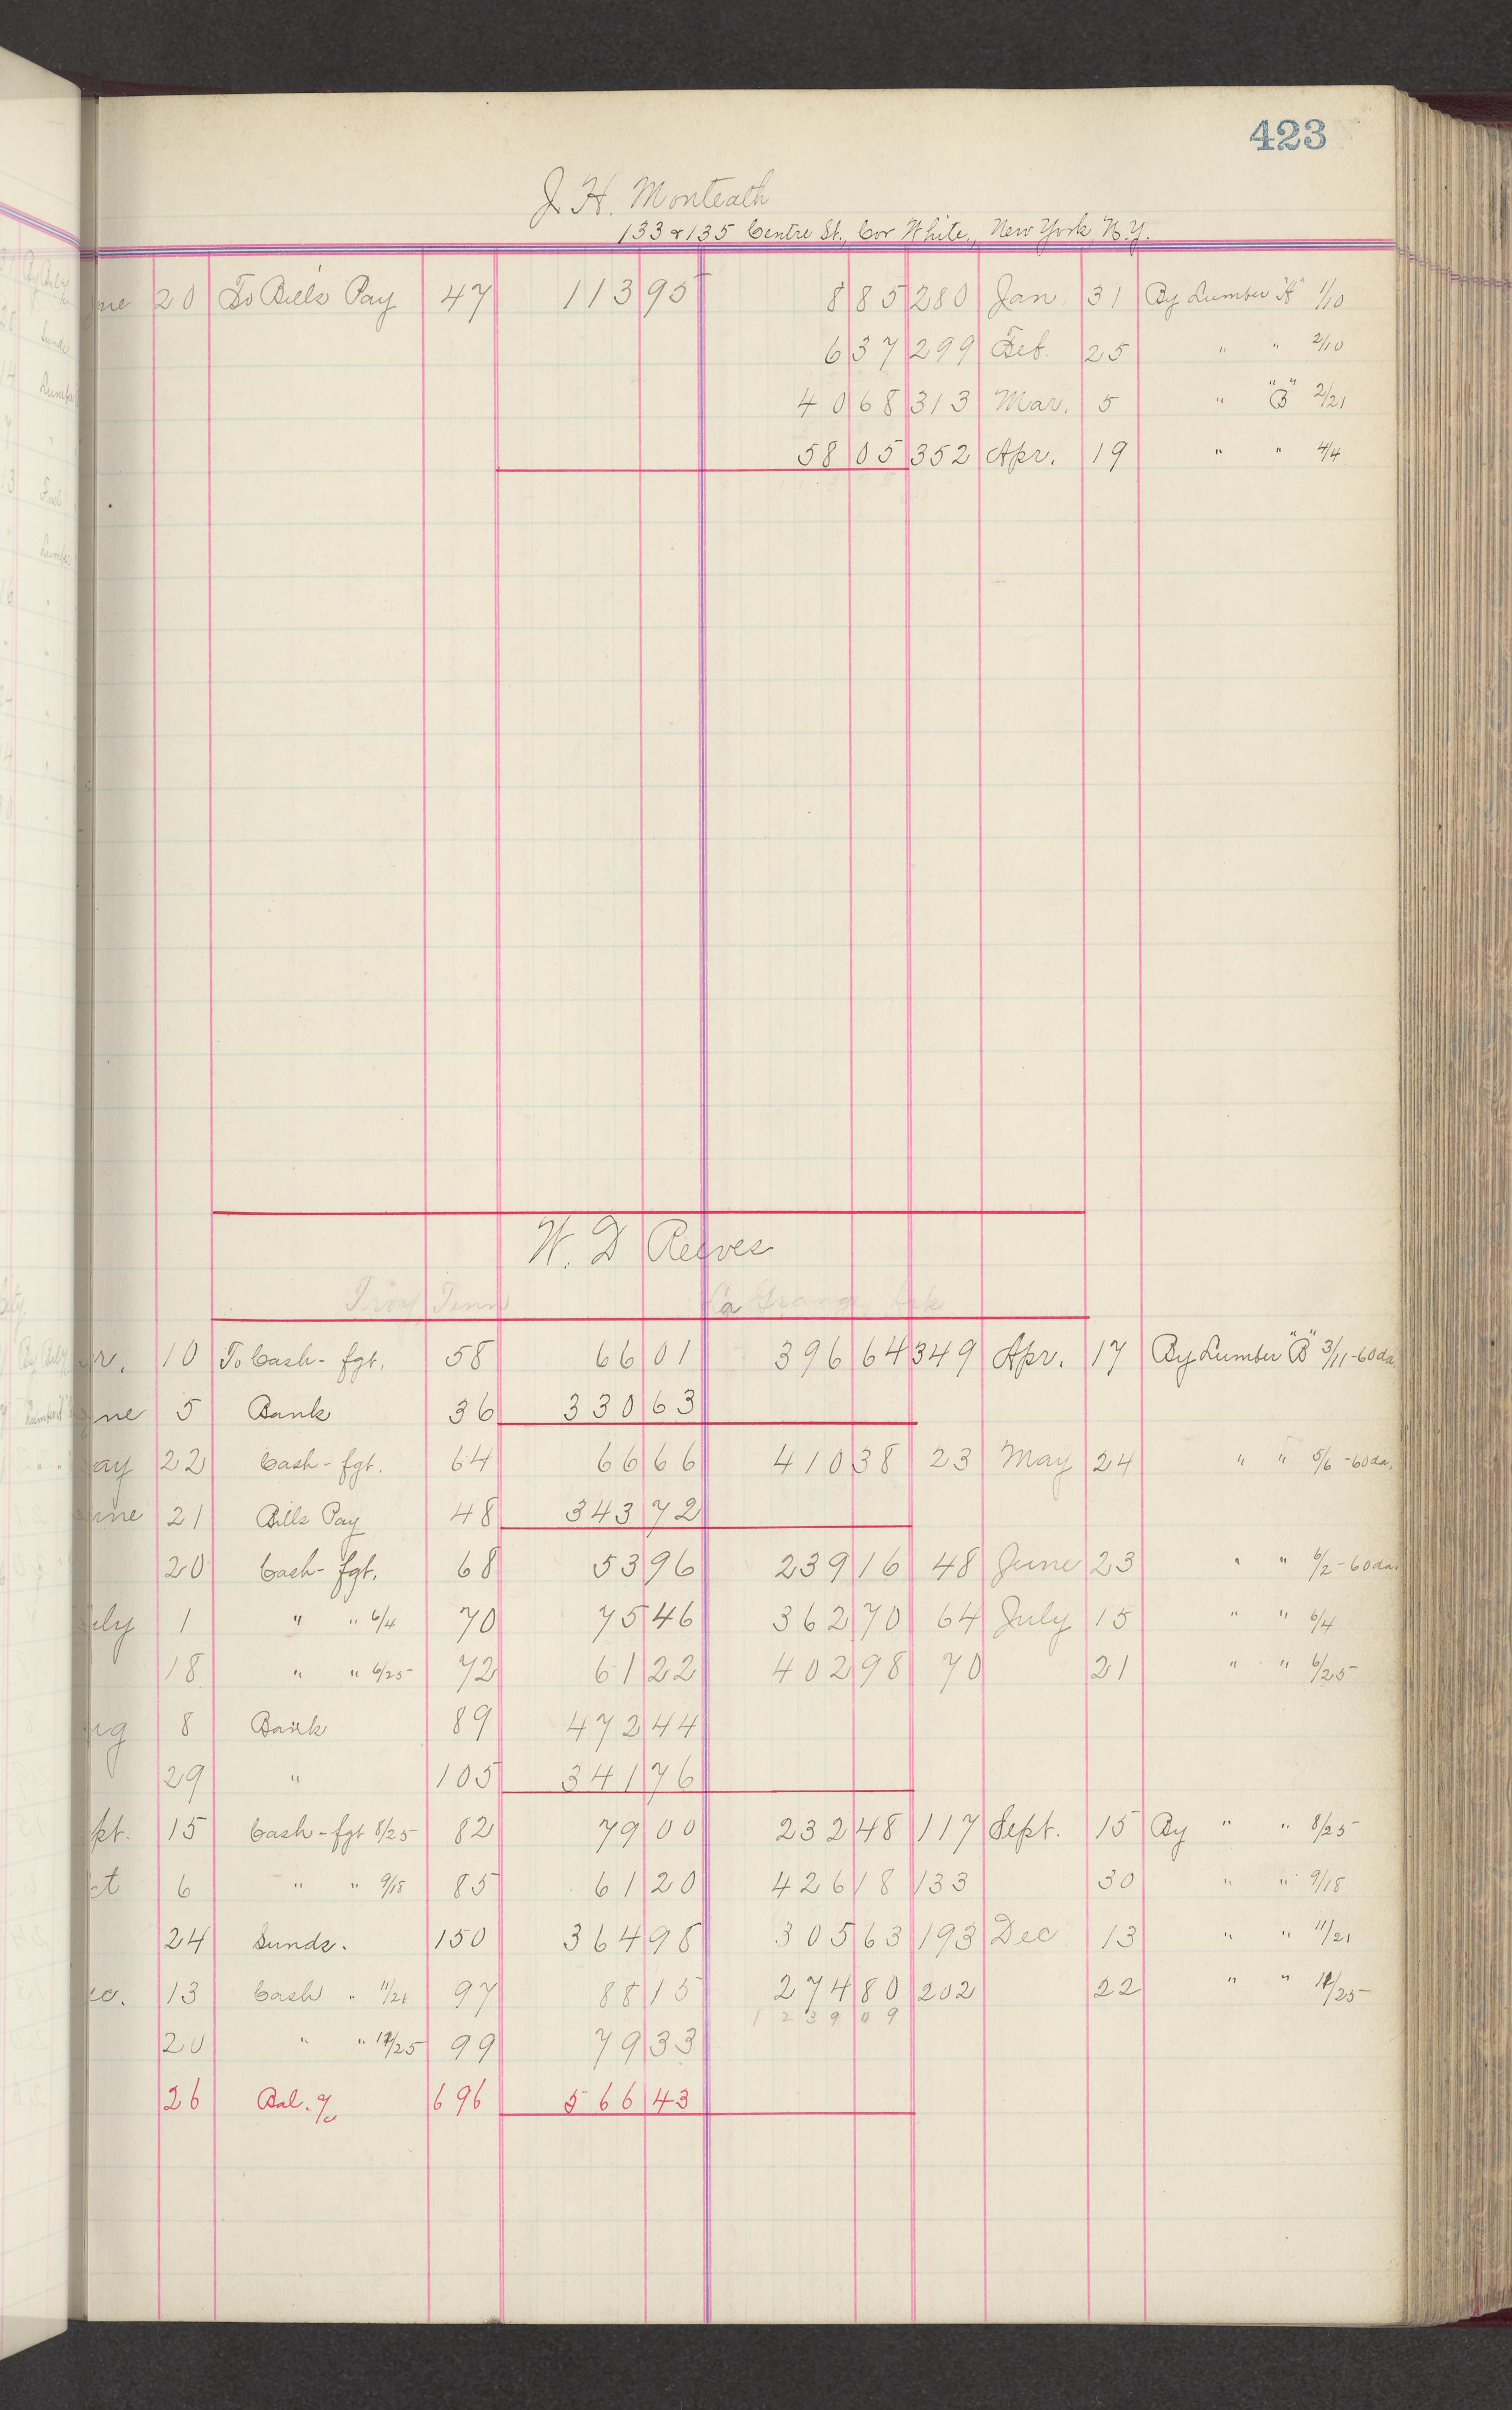 423
J. H. Monteath
133 & 135 Centre St., Cor White, New York, N.Y.
ne 20 To Bills Pay 47 113 95 8 85 280 Jan. 31 By Lumber "A" 1/10
6 37 299 Feb. 25 " " 2/10
40 68 313 Mar. 5 " "B" 2/21
58 05 352 Apr. 19 " " 4/4
W. D Reeves
Troy Tenn La Grange Ark
r. 10 To Cash - fgt. 58 66 01 396 64 349 Apr. 17 By Lumber "B" 3/11 - 60 da
ne 5 Bank 36 330 63
ay 22 Cash - fgt. 64 66 66 410 38 23 May 24 " " 5/6 - 60 da.
une 21 Bills Pay 48 343 72
20 Cash - fgt. 68 53 96 239 16 48 June 23 " " 6/2 - 60 da.
ly 1 " " 6/4 70 75 46 362 70 64 July 15 " " 6/4
18 " " 6/25 72 61 22 402 98 70 21 " " 6/25
ug 8 Bank 89 472 44
29 " 105 341 76
pt. 15 Cash - fgt 8/25 82 79 00 232 48 117 Sept. 15 By " " 8/25
ct 6 " " 9/18 85 61 20 426 18 133 30 " " 9/18
24 Sunds. 150 364 98 305 63 193 Dec 13 " " 11/21
ec. 13 Cash " 11/21 97 88 15 274 80 202 22 " " 11/25
1239 09
20 " " 11/25 99 79 33
26 Bal. % 696 566 43